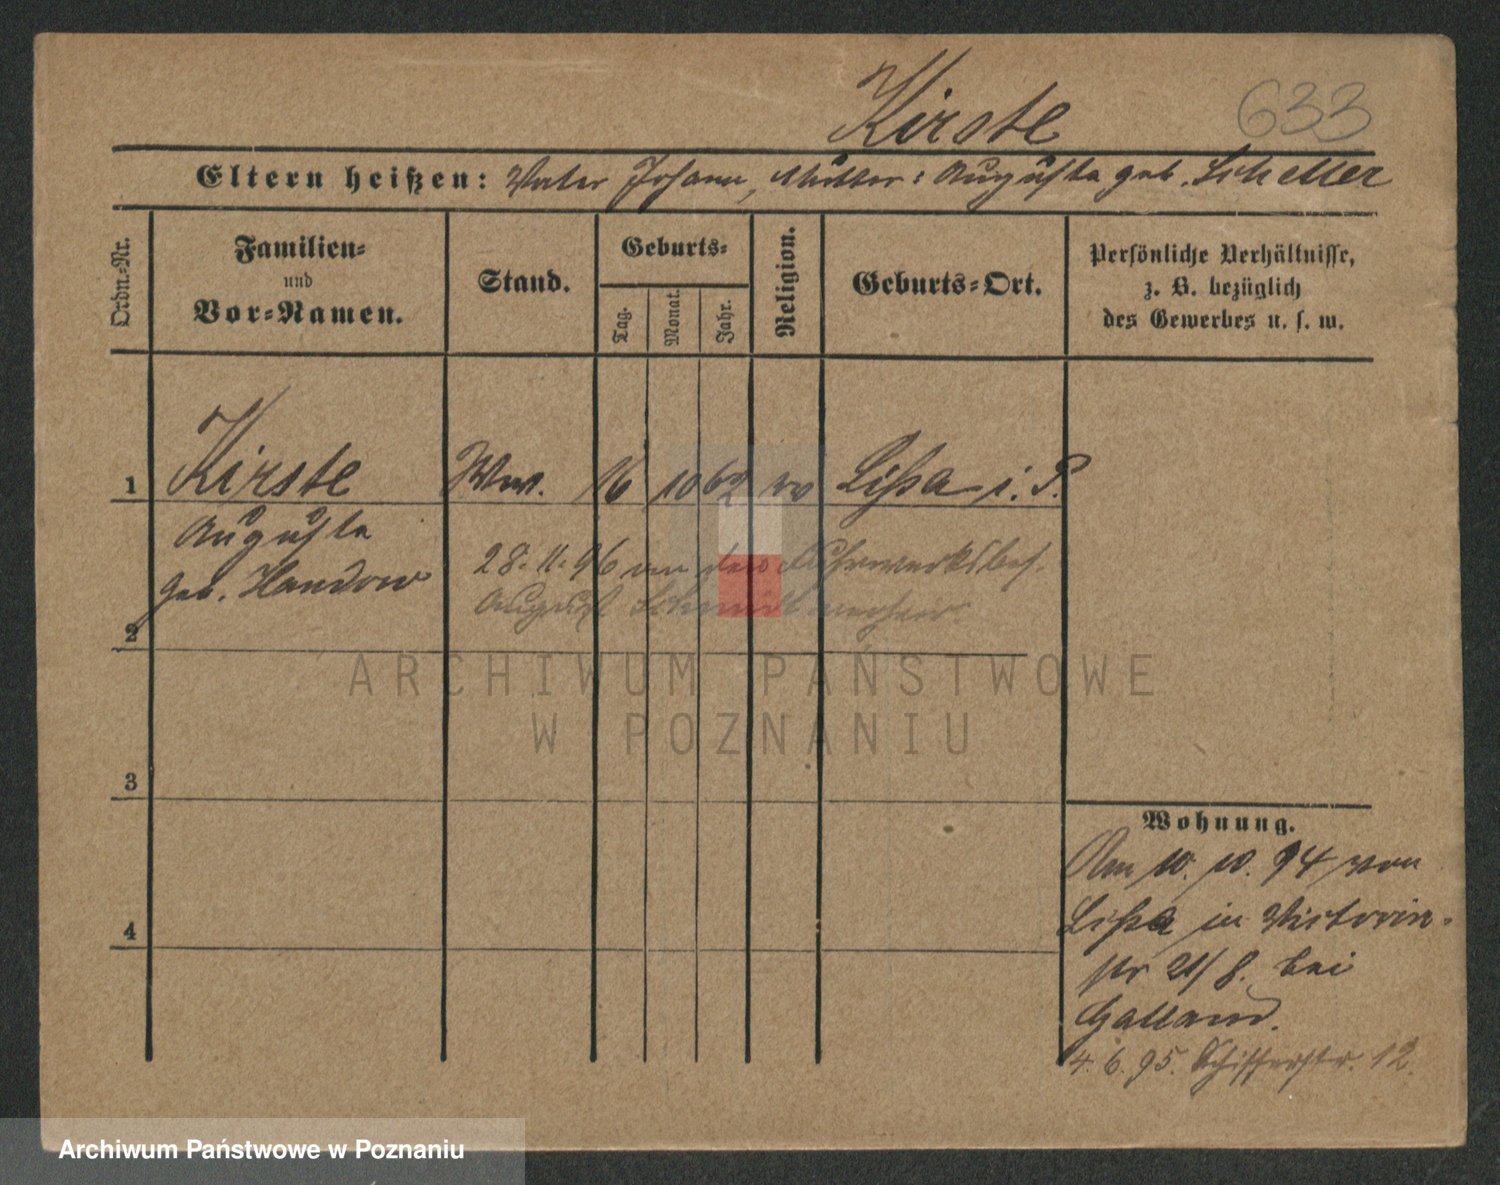 Kirste 633
Eltern heißen: Vater Johann, Mutter: Auguste geb. Scheller
Ordn.-Nr.
Familien-
und
Vor-Namen.
Stand.
Geburts-
Tag.
Monat.
Jahr.
Religion.
Geburts-Ort.
Persönliche Verhältnisse,
z. B. bezüglich
des Gewerbes u. s. w.
1 Kirste Ww. 16 10 62 ev Lißa i. P.
Auguste
geb. Handow
28. 11. 96 an den Fuhrwerksbes.
August Schmidt
2
3
4
Wohnung.
Am 10. 10. 94 von
Lißa in Victoria-
str 21/8. bei
Galland.
4. 6. 95. Schifferstr. 12.
ARCHIWUM PAŃSTWOWE
W POZNANIU
Archiwum Państwowe w Poznaniu